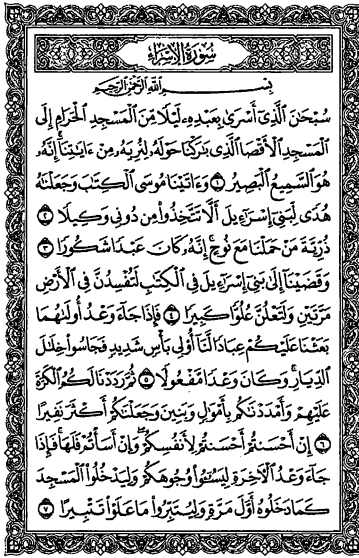 سُورَةُ الإِسْرَاءِ
بِسْمِ اللَّهِ الرَّحْمَٰنِ الرَّحِيمِ
سُبْحَٰنَ ٱلَّذِىٓ أَسْرَىٰ بِعَبْدِهِۦ لَيْلًا مِّنَ ٱلْمَسْجِدِ ٱلْحَرَامِ إِلَى
ٱلْمَسْجِدِ ٱلْأَقْصَا ٱلَّذِى بَٰرَكْنَا حَوْلَهُۥ لِنُرِيَهُۥ مِنْ ءَايَٰتِنَآ إِنَّهُۥ
هُوَ ٱلسَّمِيعُ ٱلْبَصِيرُ ١ وَءَاتَيْنَا مُوسَى ٱلْكِتَٰبَ وَجَعَلْنَٰهُ
هُدًى لِّبَنِىٓ إِسْرَٰٓءِيلَ أَلَّا تَتَّخِذُوا۟ مِن دُونِى وَكِيلًا ٢
ذُرِّيَّةَ مَنْ حَمَلْنَا مَعَ نُوحٍ إِنَّهُۥ كَانَ عَبْدًا شَكُورًا ٣
وَقَضَيْنَآ إِلَىٰ بَنِىٓ إِسْرَٰٓءِيلَ فِى ٱلْكِتَٰبِ لَتُفْسِدُنَّ فِى ٱلْأَرْضِ
مَرَّتَيْنِ وَلَتَعْلُنَّ عُلُوًّا كَبِيرًا ٤ فَإِذَا جَآءَ وَعْدُ أُولَىٰهُمَا
بَعَثْنَا عَلَيْكُمْ عِبَادًا لَّنَآ أُو۟لِى بَأْسٍ شَدِيدٍ فَجَاسُوا۟ خِلَٰلَ
ٱلدِّيَارِ وَكَانَ وَعْدًا مَّفْعُولًا ٥ ثُمَّ رَدَدْنَا لَكُمُ ٱلْكَرَّةَ
عَلَيْهِمْ وَأَمْدَدْنَٰكُم بِأَمْوَٰلٍ وَبَنِينَ وَجَعَلْنَٰكُمْ أَكْثَرَ نَفِيرًا
٦ إِنْ أَحْسَنتُمْ أَحْسَنتُمْ لِأَنفُسِكُمْ وَإِنْ أَسَأْتُمْ فَلَهَا فَإِذَا
جَآءَ وَعْدُ ٱلْءَاخِرَةِ لِيَسُۥٓـُٔوا۟ وُجُوهَكُمْ وَلِيَدْخُلُوا۟ ٱلْمَسْجِدَ
كَمَا دَخَلُوهُ أَوَّلَ مَرَّةٍ وَلِيُتَبِّرُوا۟ مَا عَلَوْا۟ تَتْبِيرًا ٧